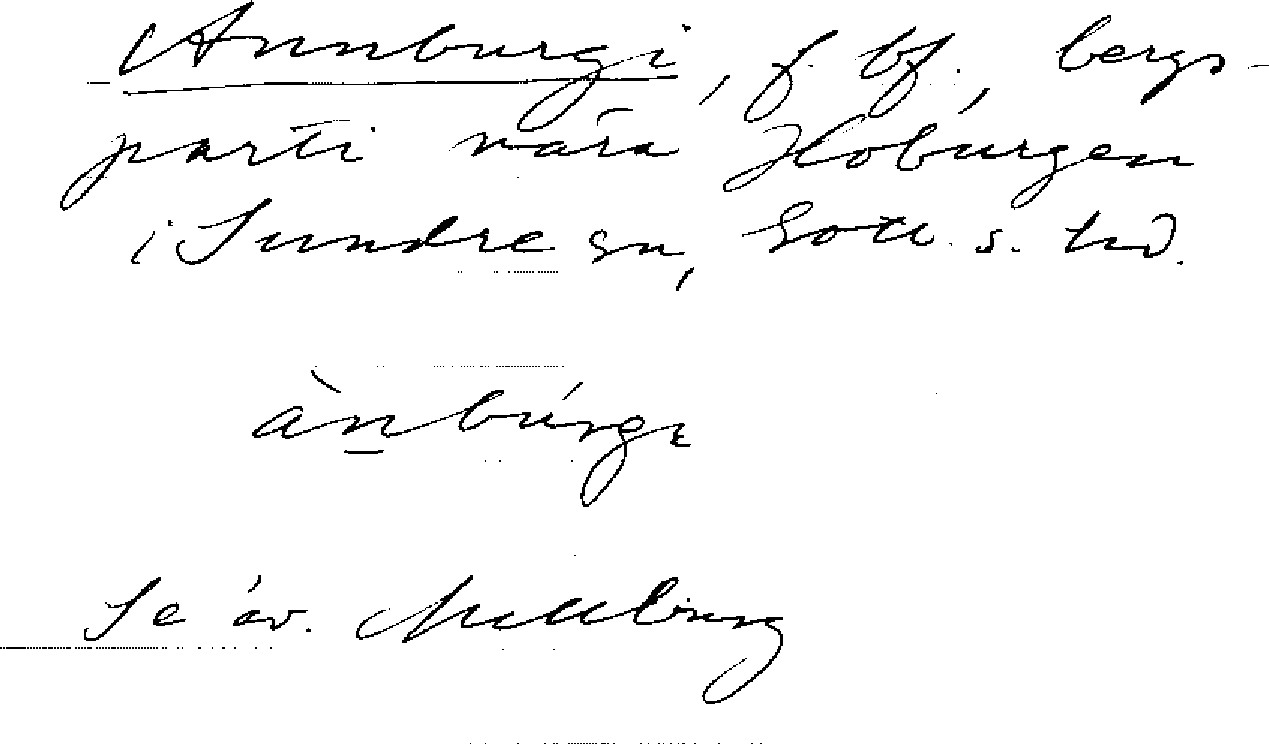 Annburgi, f. bf., bergs-
parti nära Hoburgen
i Sundre sn, Gotl. s. hd.
ànbúrgı
Se äv. Mellburg